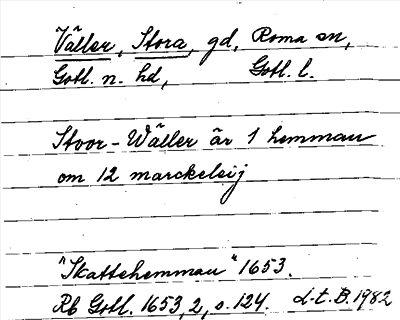 Väller, Stora, gd, Roma sn,
Gotl. n. hd, Gotl. l.
Stoor-Wäller är 1 hemman
om 12 marckeleij
"Skattehemman" 1653.
Rb Gotl. 1653, 2, s. 124. L-t. B. 1982